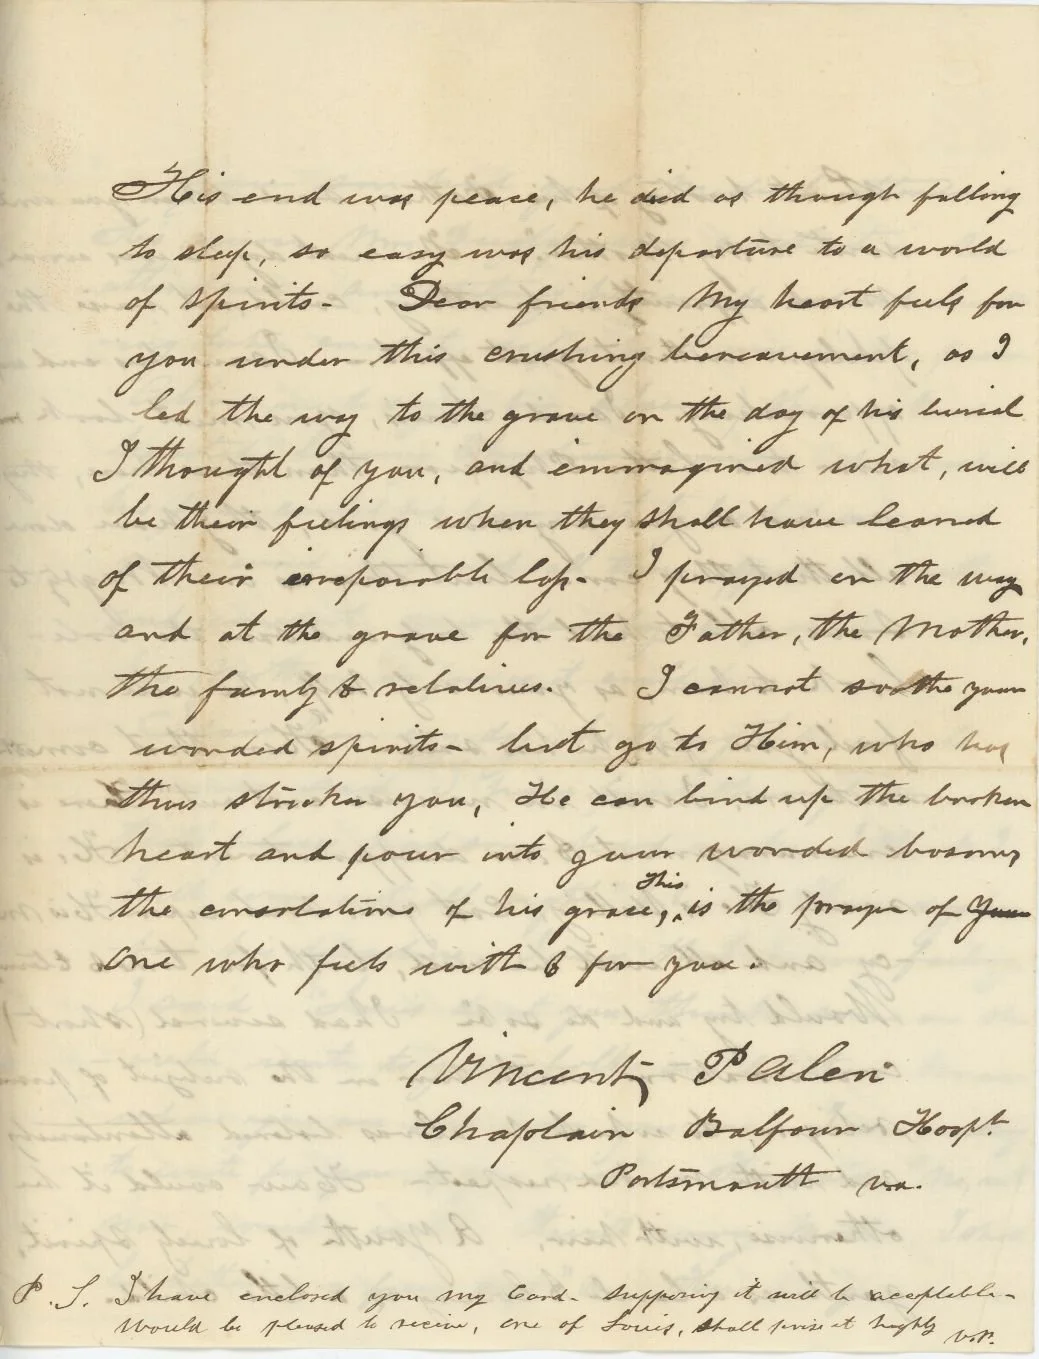 His end was peace, he died as though falling
to sleep, so easy was his departure to a world
of spirits - Dear friends My heart feels for
you under this crushing bereavement, as I
led the way to the grave on the day of his burial
I thought of you, and immagined what, will
be their feelings when they shall have learned
of their irreparable loss - I prayed on the way
and at the grave for the Father, the Mother,
the family & relatives. I cannot soothe your
wonded spirits - but go to Him, who has
thus stricken you, He can bind up the broken
heart and pour into your wonded bosoms
the consolations of his grace, This is the prayer of your
one who feels with & for you.
Vincent Palen
Chaplain Balfour Hospt.
Portsmouth va.
P. S. I have enclosed you my Card - supposing it will be acceptable -
would be pleased to receive, one of Louis, shall prise it highly V.P.